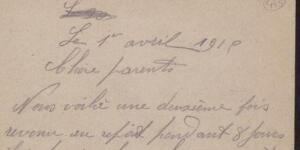 Le 1er avril 1918
Chère parents
Nous voilà une deuxième fois
revenu au repôt pendant 8 jours